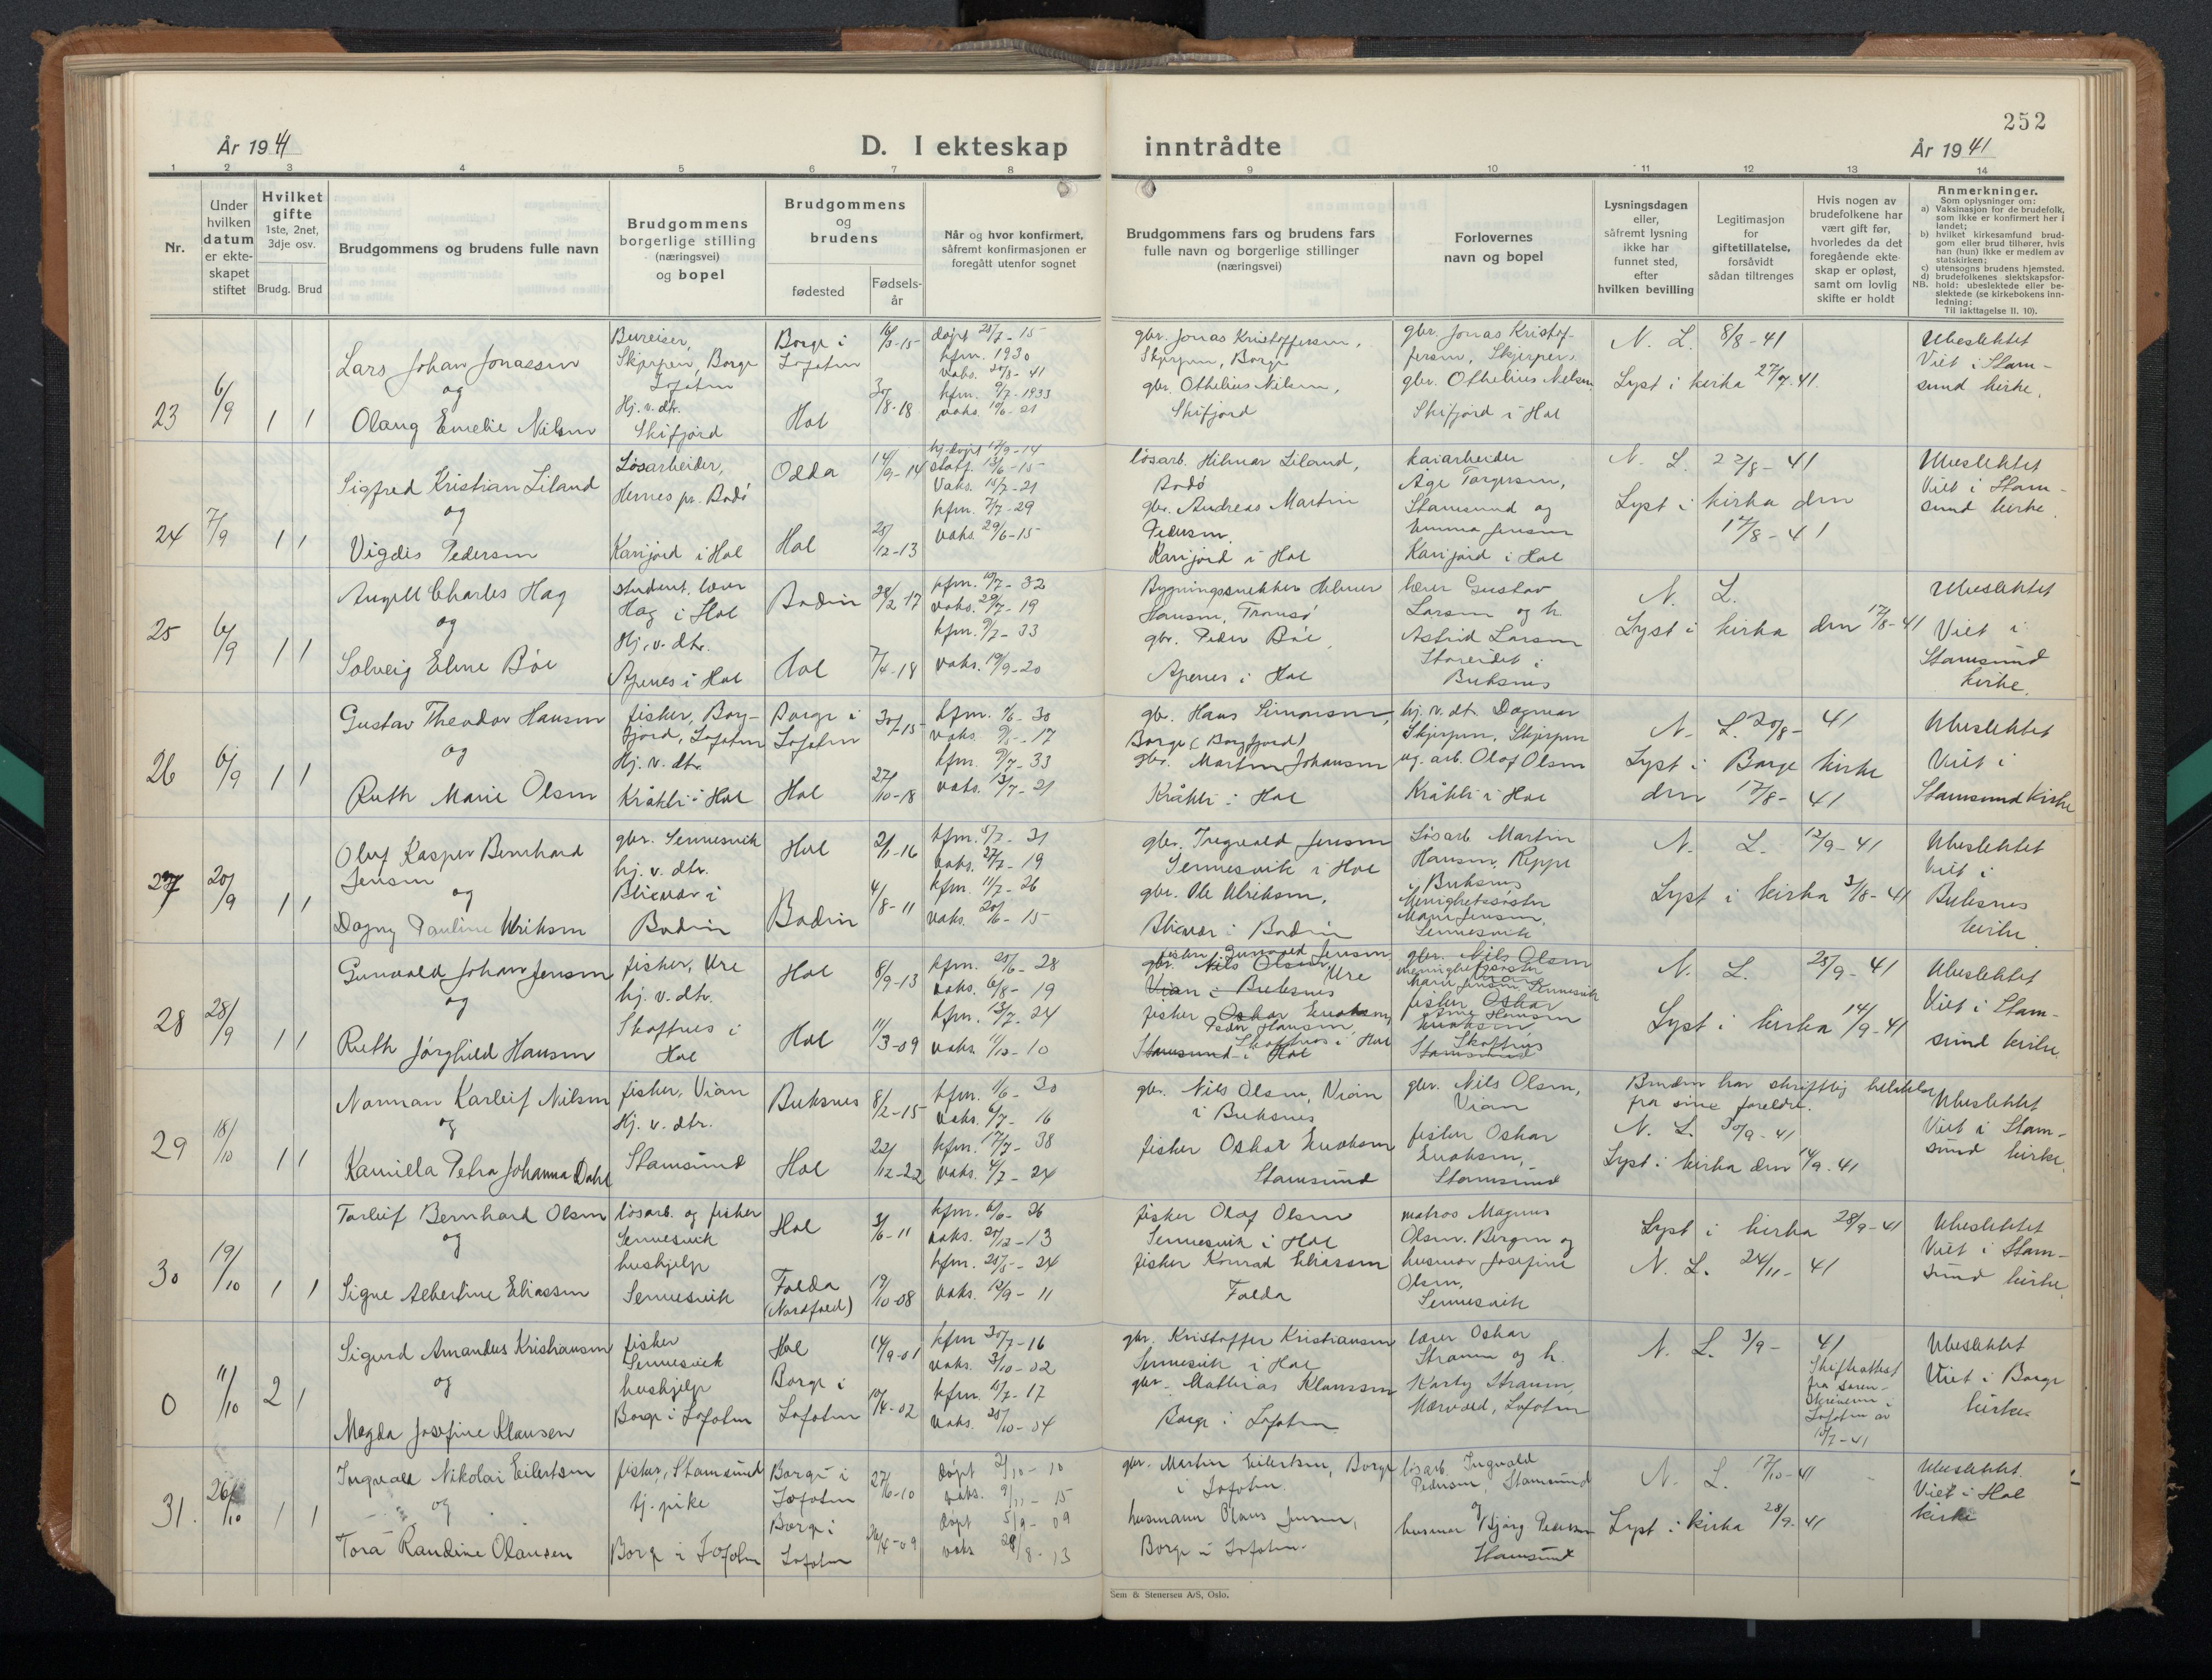 252
År 1941
D. I ekteskap inntrådte
År 1941
1 2 3 4 5 6 7 8 9 10 11 12 13 14
Nr.
Under hvilken datum er ekte-skapet stiftet
Hvilket gifte 1ste, 2net, 3dje osv.
Brudg. Brud
Brudgommens og brudens fulle navn
Brudgommens borgerlige stilling (næringsvei) og bopel
Brudgommens og brudens
fødested
Fødsels-år
Når og hvor konfirmert, såfremt konfirmasjonen er foregått utenfor sognet
Brudgommens fars og brudens fars fulle navn og borgerlige stillinger (næringsvei)
Forlovernes navn og bopel
Lysningsdagen eller, såfremt lysning ikke har funnet sted, efter hvilken bevilling
Legitimasjon for giftetillatelse, forsåvidt sådan tiltrenges
Hvis nogen av brudefolkene har vært gift før, hvorledes da det foregående ekte-skap er opløst, samt om lovlig skifte er holdt
Anmerkninger.
Som oplysninger om:
a) Vaksinasjon for de brudefolk, som ikke er konfirmert her i landet;
b) hvilket kirkesamfund brud-gom eller brud tilhører, hvis han (hun) ikke er medlem av statskirken;
c) utensogns brudens hjemsted.
d) brudefolkenes slektskapsfor-
NB. hold: ubeslektede eller be-slektede (se kirkebokens inn-ledning:
Til iakttagelse II. 10).
23
6/9
1 1
Lars Johan Jonassen
og
Olaug Emelie Nilsen
Bureiser,
Skjerpen, Borge
Lofoten
Hj. v. dtr.
Skifjord
Borge i
Lofoten
Hol
døpt 25/7-15
kfm. 1930
kfm. 9/7-1933
vaks. 10/6-21
gbr. Jonas Kristoffersen,
Skjerpen, Borge
gbr. Othelius Nilsen,
Skifjord
gbr. Jonas Kristof-
fersen, Skjerpen
gbr. Othelius Nilsen
Skifjord i Hol
N. L. 8/8-41
Lyst i kirka 27/7-41.
Ubeslektet
Viet i Stam-
sund kirke.
24
7/9
1 1
Sigfred Kristian Liland
og
Vigdis Pedersen
Løsarbeider,
Hernes pr. Bodø
Karijord i Hol
Odda
14/9-14
Hol
28/12-13
Vaks. 15/7-21
kfm. 7/7-29
vaks. 29/6-15
løsarb. Hilmar Liland,
Bodø
gbr. Andreas Martin
Pedersen
Karijord i Hol
kaiarbeider
Åge Torgersen,
Stamsund og
Emma Jensen
Karijord i Hol
N. L. 22/8-41
Lyst i kirka den
17/8-41
Ubeslektet
Viet i Stam-
sund kirke.
25
6/9
1 1
Angell Charles Hag
og
Solveig Eline Bøe
student, lærer
Hag i Hol
Hj. v. dtr.
Apenes i Hol
Bodin
28/2-17
Hol
7/4-18
kfm. 10/7-32
vaks. 29/7-19
kfm. 9/7-33
vaks. 19/9-20
Bygningssnekker Helmer
Hansen, Tromsø
gbr. Peder Bøe,
Apenes i Hol
lærer Gustav
Larsen og h.
Astrid Larsen
Storeidet i
Buksnes
N. L.
Lyst i kirka den 17/8-41
Ubeslektet
Viet i
Stamsund
kirke.
26
6/9
1 1
Gustav Theodor Hansen
og
Ruth Marie Olsen
fisker, Borg-
fjord, Lofoten
Hj. v. dtr.
Kråkli i Hol
Borge i
Lofoten
Hol
27/10-18
kfm. 9/7-33
vaks. 13/7-21
gbr. Hans Simonsen,
Borge (Borgfjord)
gbr. Martin Johansen
Kråkli i Hol
hj. v. dt. Dagmar
Skjerpen, Skjerpen
ug. arb. Olaf Olsen
Kråkli i Hol
N. L. 20/8-41
Lyst i Borge kirke
den 17/8-41
Ubeslektet
Viet i
Stamsund kirke
27
20/9
1 1
Oluf Kasper Bernhard
Jensen
og
Dagny Pauline Ulriksen
gbr. Sennesvik
hj. v. dtr.
Blixvær i
Bodin
Hol
2/1-16
Bodin
4/8-11
kfm. 5/7-31
vaks. 27/7-19
kfm. 11/7-26
gbr. Tregvald Jensen
Sennesvik i Hol
gbr. Ole Ulriksen,
Blixvær i Bodin
Løsarb. Martin
Hansen, Reppe
Buksnes
Menighetssøster
Marie Jensen,
Sennesvik
N. L. 12/9-41
Lyst i kirka 3/8-41
Ubeslektet
Viet i
Buksnes
kirke
28
28/9
1 1
Gunvald Johan Jensen
og
Ruth Jørghild Hansen
fisker, Ure
hj. v. dtr.
Skoftnes i
Hol
Hol
8/9-13
Hol
11/3-09
kfm. 25/6-28
vaks. 6/8-19
kfm. 13/7-24
vaks. 11/10-10
fisker Gunvald Jensen
gbr. Nils Olsen, Ure
Vian i Buksnes
fisker Oskar Enoksen
Peder Hansen,
Skoftnes i Hol
Stamsund i Hol
gbr. Nils Olsen
menighetssøster
Vian
Marie Jensen, Sennesvik
fisker Oskar
Hansen
Enoksen
Skoftnes
Stamsund
N. L. 25/9-41
Lyst i kirka 14/9-41
Ubeslektet
Viet i Stam-
sund kirke.
29
18/10
1 1
Norman Karleif Nilsen
og
Kamilla Petra Johanna Dahl
fisker, Vian
Hj. v. dtr.
Stamsund
Buksnes
8/2-15
Hol
22/12-22
kfm. 1/6-30
vaks. 6/7-16
kfm. 17/7-38
vaks. 4/7-24
gbr. Nils Olsen, Vian
i Buksnes
fisker Oskar Enoksen
Stamsund
gbr. Nils Olsen,
Vian
fisker Oskar
Enoksen,
Stamsund
Bruden har skriftlig tillatelse
fra sine foreldre.
N. L. 30/9-41
Lyst i kirka den 14/9-41
Ubeslektet
Viet i Stam-
sund kirke.
30
19/10
1 1
Torleif Bernhard Olsen
og
Signe Albertine Eliassen
løsarb. og fisker
Sennesvik
hushjelp
Sennesvik
Hol
3/6-11
Folda
(Nordfold)
19/10-08
kfm. 6/6-26
vaks. 20/12-13
kfm. 25/5-24
vaks. 12/9-11
fisker Olaf Olsen
Sennesvik i Hol
fisker Konrad Eliassen
Folda
matros Magnus
Olsen. Bergen og
husmor Josefine
Olsen,
Sennesvik
Lyst i kirka 28/9-41
N. L. 24/11-41
Ubeslektet
Viet i Stam-
sund kirke.
0
11/10
2 1
Sigurd Amandus Kristiansen
og
Magda Josefine Klausen
fisker
Sennesvik
hushjelp
Borge i Lofoten
Hol
14/9-01
Borge i
Lofoten
kfm 30/7-16
vaks. 3/10-02
kfm. 15/7-17
vaks. 25/10-04
gbr. Kristoffer Kristiansen
Sennesvik i Hol
gbr. Mathias Klaussen
Borge i Lofoten
lærer Oskar
Straum og h.
Marty Straum,
Mærvold, Lofoten
N. L. 3/9-41
Skifteattest
fra soren-
skriveren i
Lofoten av
15/7-41
Ubeslektet
Viet i Borge
kirke
31.
26/10
1 1
Ingvald Nikolai Eilertsen
og
Tora Randine Olausen
fisker, Stamsund
tj. pike
Borge i Lofoten
Borge i
Lofoten
27/6-10
Borge i
Lofoten
26/4-09
døpt 2/10-10
vaks. 9/11-15
døpt 5/9-09
vaks 28/8-13
gbr. Martin Eilertsen, Borge
i Lofoten.
husmann Olaus Jensen,
Borge i Lofoten.
løsarb. Ingvald
Pedersen, Stamsund
og
husmor Bjørg Pedersen
Stamsund
N. L. 17/10-41
Lyst i kirka 28/9-41
Ubeslektet.
Viet i Hol
kirke
Sem & Stenersen A/S, Oslo.